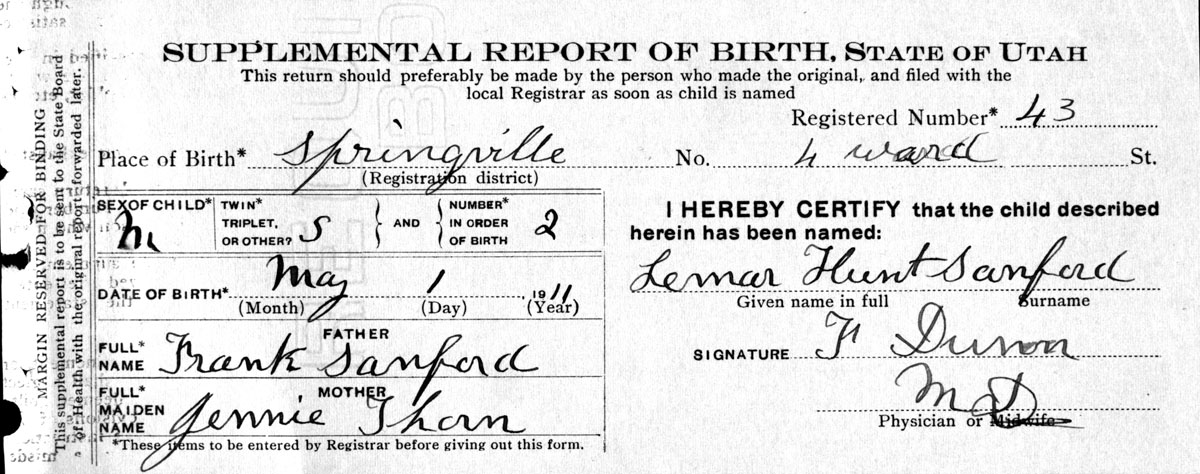 SUPPLEMENTAL REPORT OF BIRTH, STATE OF UTAH
This return should preferably be made by the person who made the original, and filed with the
local Registrar as soon as child is named
Registered Number* 43
Place of Birth* Springville No. 4 ward St.
(Registration district)
SEX OF CHILD* M
TWIN* TRIPLET, OR OTHER? S
AND
NUMBER* IN ORDER OF BIRTH 2
DATE OF BIRTH* May 1 1911
(Month) (Day) (Year)
FATHER
FULL* NAME Frank Sanford
MOTHER
FULL* MAIDEN NAME Jennie Thorn
*These items to be entered by Registrar before giving out this form.
I HEREBY CERTIFY that the child described
herein has been named:
Lemar Hunt Sanford
Given name in full Surname
SIGNATURE F
M D
Physician or Midwife
MARGIN RESERVED FOR BINDING
This supplemental report is to be sent to the State Board
of Health with the original report forwarded later.